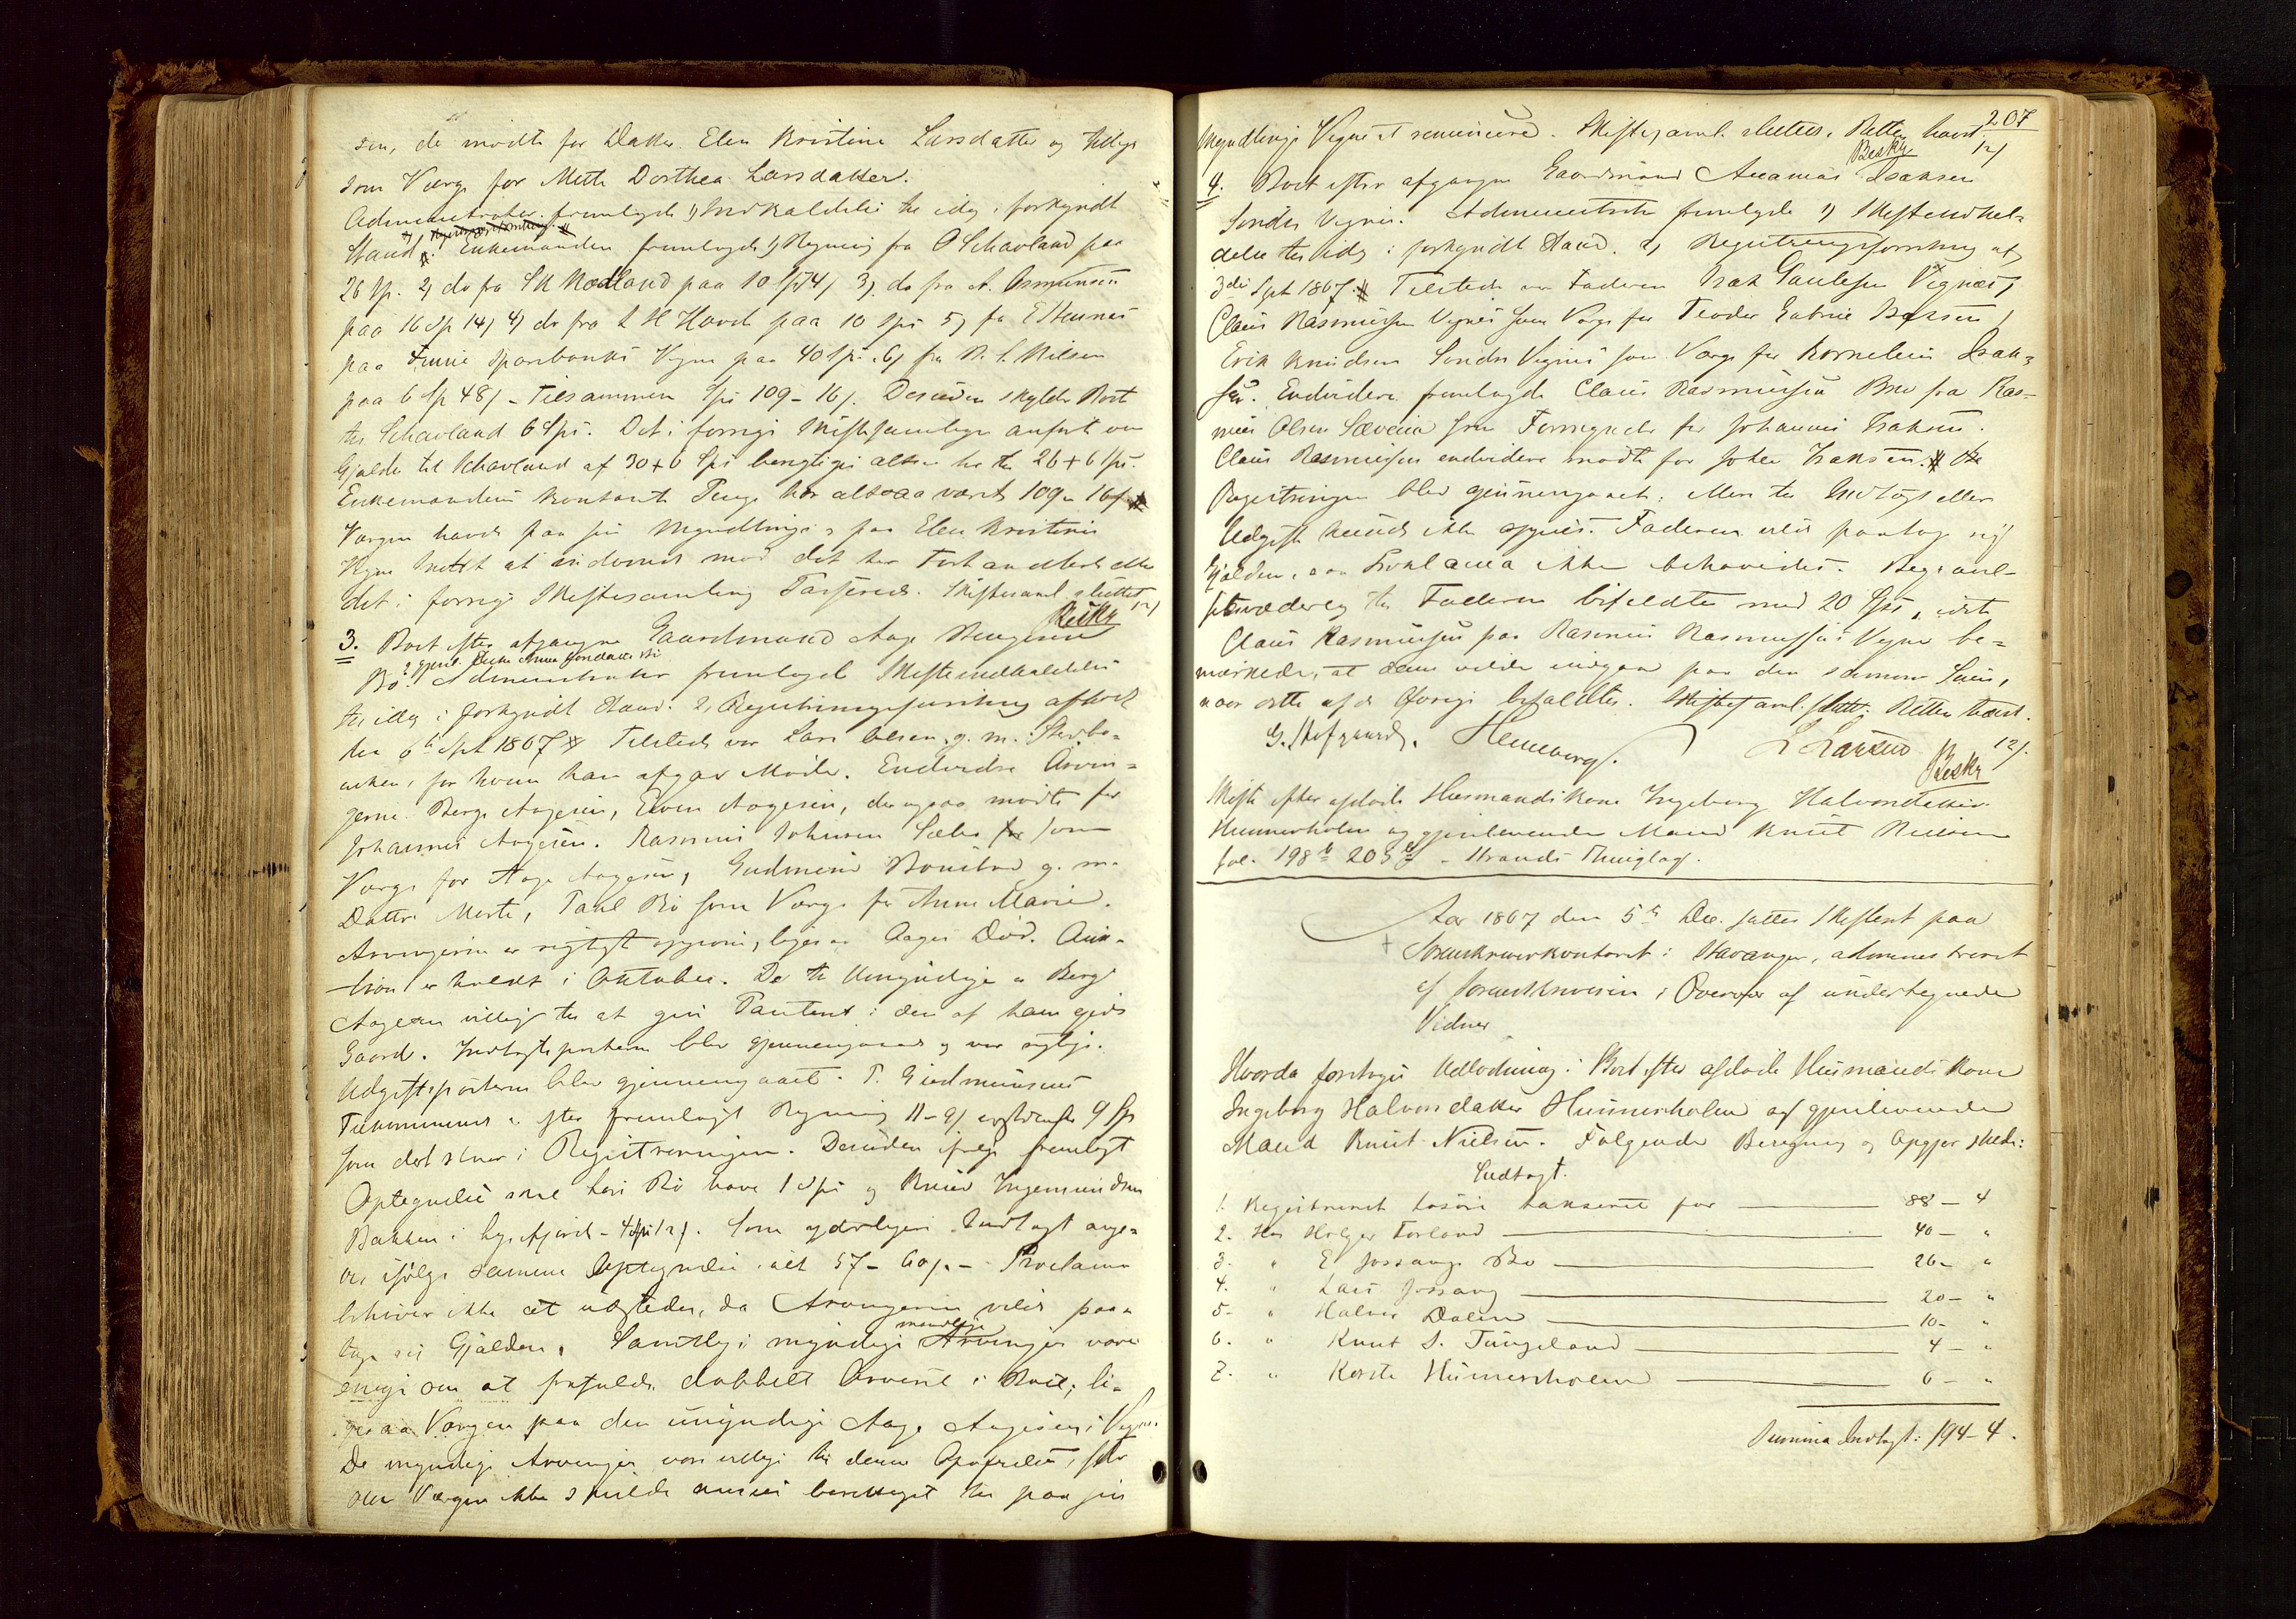 sen, de mødte for Datter Elen Kristine Larsdatter og tillige
som Værge for Mette Dorthea Larsdatter.
Administrator fremlagde 1) Indkaldelse til idag i forkyndt
Stand. Enkemanden fremlagde 1) Regning fra O Schavland paa
26 Sp. 2) do fra Madland paa 10 Sp 74/ 3) do fra A. Asmunsen
paa 16 Sp 14/ 4) do fra L H Havch paa 10 Spd 5) fra E
paa Sparebanks Vegne paa 40 Sp. 6) fra Nilsen
paa 6 Sp 48/ - Tilsammen Spd 109-16/. Desuden skylder Boet
til Schavland 6 Spd. Det i forrige Skiftesamling anførte om
Gjæld til Schavland af 30+6 Spd berigtiges altsaa til 26+6 Spd.
Enkemandens kontante Penge har altsaa været 109 - 16/
Værgen havde paa sin Myndlings og paa Elen Kristines
Vegne Intet at indvende mod det her Forhandlede eller
det i forrige Skiftesamling Passerede. Skiftesaml. sluttet
12/
3. Boet efter afgangne Gaardmand Aage Bergesen
Bø. Administrator fremlagde Skifteindkaldelse
til idag i forkyndt Stand. 2, Registreringsforretning afholdt
den 6te Sept 1867 Tilstede var Lars Olsen g. m. Stervbo-
enken, for hvem han afgav Møde. Endvidere Arvin-
gerne Berge Aagesen, Even Aagesen, der ogsaa mødte for
Johannes Aagesen. Rasmus Johnsen Sæbø som
Værge for Aage Aagesen, Gudmund g. m.
Datter Marte, Paul Bø som Værge for Anne Marie.
Arvingerne er rigtigt opgivne, ligesaa Aages Død. Auk-
tion er holdt i Oktober. De til Umyndige er Berge
Aagesen villig til at give Panteret i den af ham eiede
Gaard. Indtægtsposterne blev gjennemgaaet og var rigtige.
Udgiftsposterne blev gjennemgaaet. T. Gudmunsens
Tilkommende er efter fremlagt Regning 11-9/ istedenfor 9 Sp
som det staar i Registreringen. Desuden ifølge fremlagt
Optegnelse skal Bø have 1 Spd og Knud Ingemundsen
Bakken i Lysefjord - 4 Spd 12/. Som yderligere Indtægt ang-
ves ifølge samme Optegnelse ialt 57 - 60/. - Proclama
behøver ikke at udstedes, da Arvingerne vilde paa-
tage sig Gjælden. Samtlige myndige mandlige Arvinger vare
enige om at frafalde dobbelt Arveret i Boet; li-
gesaa Værgen paa den umyndige Aage Aagesens Vegne.
De myndige Arvinger vare villige til denne Opofrelse, selv
om Værgen ikke skulde ansees berettiget til paa sin
207
Myndlings Vegne at renuncere. Skiftesaml. sluttes. Retten hævet.
Beskr
12/
4. Boet efter afgangne Gaardmand Ananias Isaksen
Søndre Vignes. Administrator fremlagde 1) Skifteindkal-
delse til idag i forkyndt Stand. 2, Registreringsforretning af
3die Sept 1867. Tilstede var Faderen Isak Paulsen Vignes,
Claus Rasmussen Vignes som Værge for Teodor Gabriel Bersen,
Erik Knudsen Søndre Vignes som Værge for Kornelius Isak-
sen. Endvidere fremlagde Claus Rasmussen Brev fra Ras-
mus Olsen Sævein som Formynder for Johannes Isaksen.
Claus Rasmussen endvidere mødte for Isaksen.
Registringen blev gjennemgaaet. Mere til Indtægt eller
Udgift kunde ikke opgives. Faderen vilde paatage sig
Gjælden, saa Proklama ikke behøvedes. Begravel-
sesvederlag til Faderen bifaldtes med 20 Spd, idet
Claus Rasmussen paa Rasmus Rasmussens Vegne be-
mærkede, at denne vilde indgaa paa den samme Sum,
naar dette af de Øvrige bifaldtes. Skiftesaml. sluttet. Retten hævet.
G. Hofgaard. Henneberg. L Larsen
12/.
Beskr
Skifte efter afdøde Husmandskone Ingeborg Halvorsdatter
Hummerholm og gjenlevende Mand Knut Nielsen
fol. 198 b 203 - Strands Thinglag.
Aar 1867 den 5te Dec. sattes Skifteret paa
Sorenskriverkontoret i Stavanger, administreret
af Sorenskriveren i Overvær af undertegnede
Vidner
Hvorda foretoges Udlodning i Boet efter afdøde Husmandskone
Ingeborg Halvorsdatter Hummerholm og gjenlevende
Mand Knut Nielsen. Følgende Beregning og Opgjør skede:
Indtægt.
1. Registreret Løsøre takseret for 88 - 4
2. Hos Holger Forland 40 - "
3. " E Jøssang Bø 26 - "
4. " Lars Jøssang 20 - "
5. " Halvor Dalen 10 - "
6. " Knut S. Tungeland 4 - "
7. " Karste Hummerholm 6 - "
Summa Indtægt: 194 - 4.